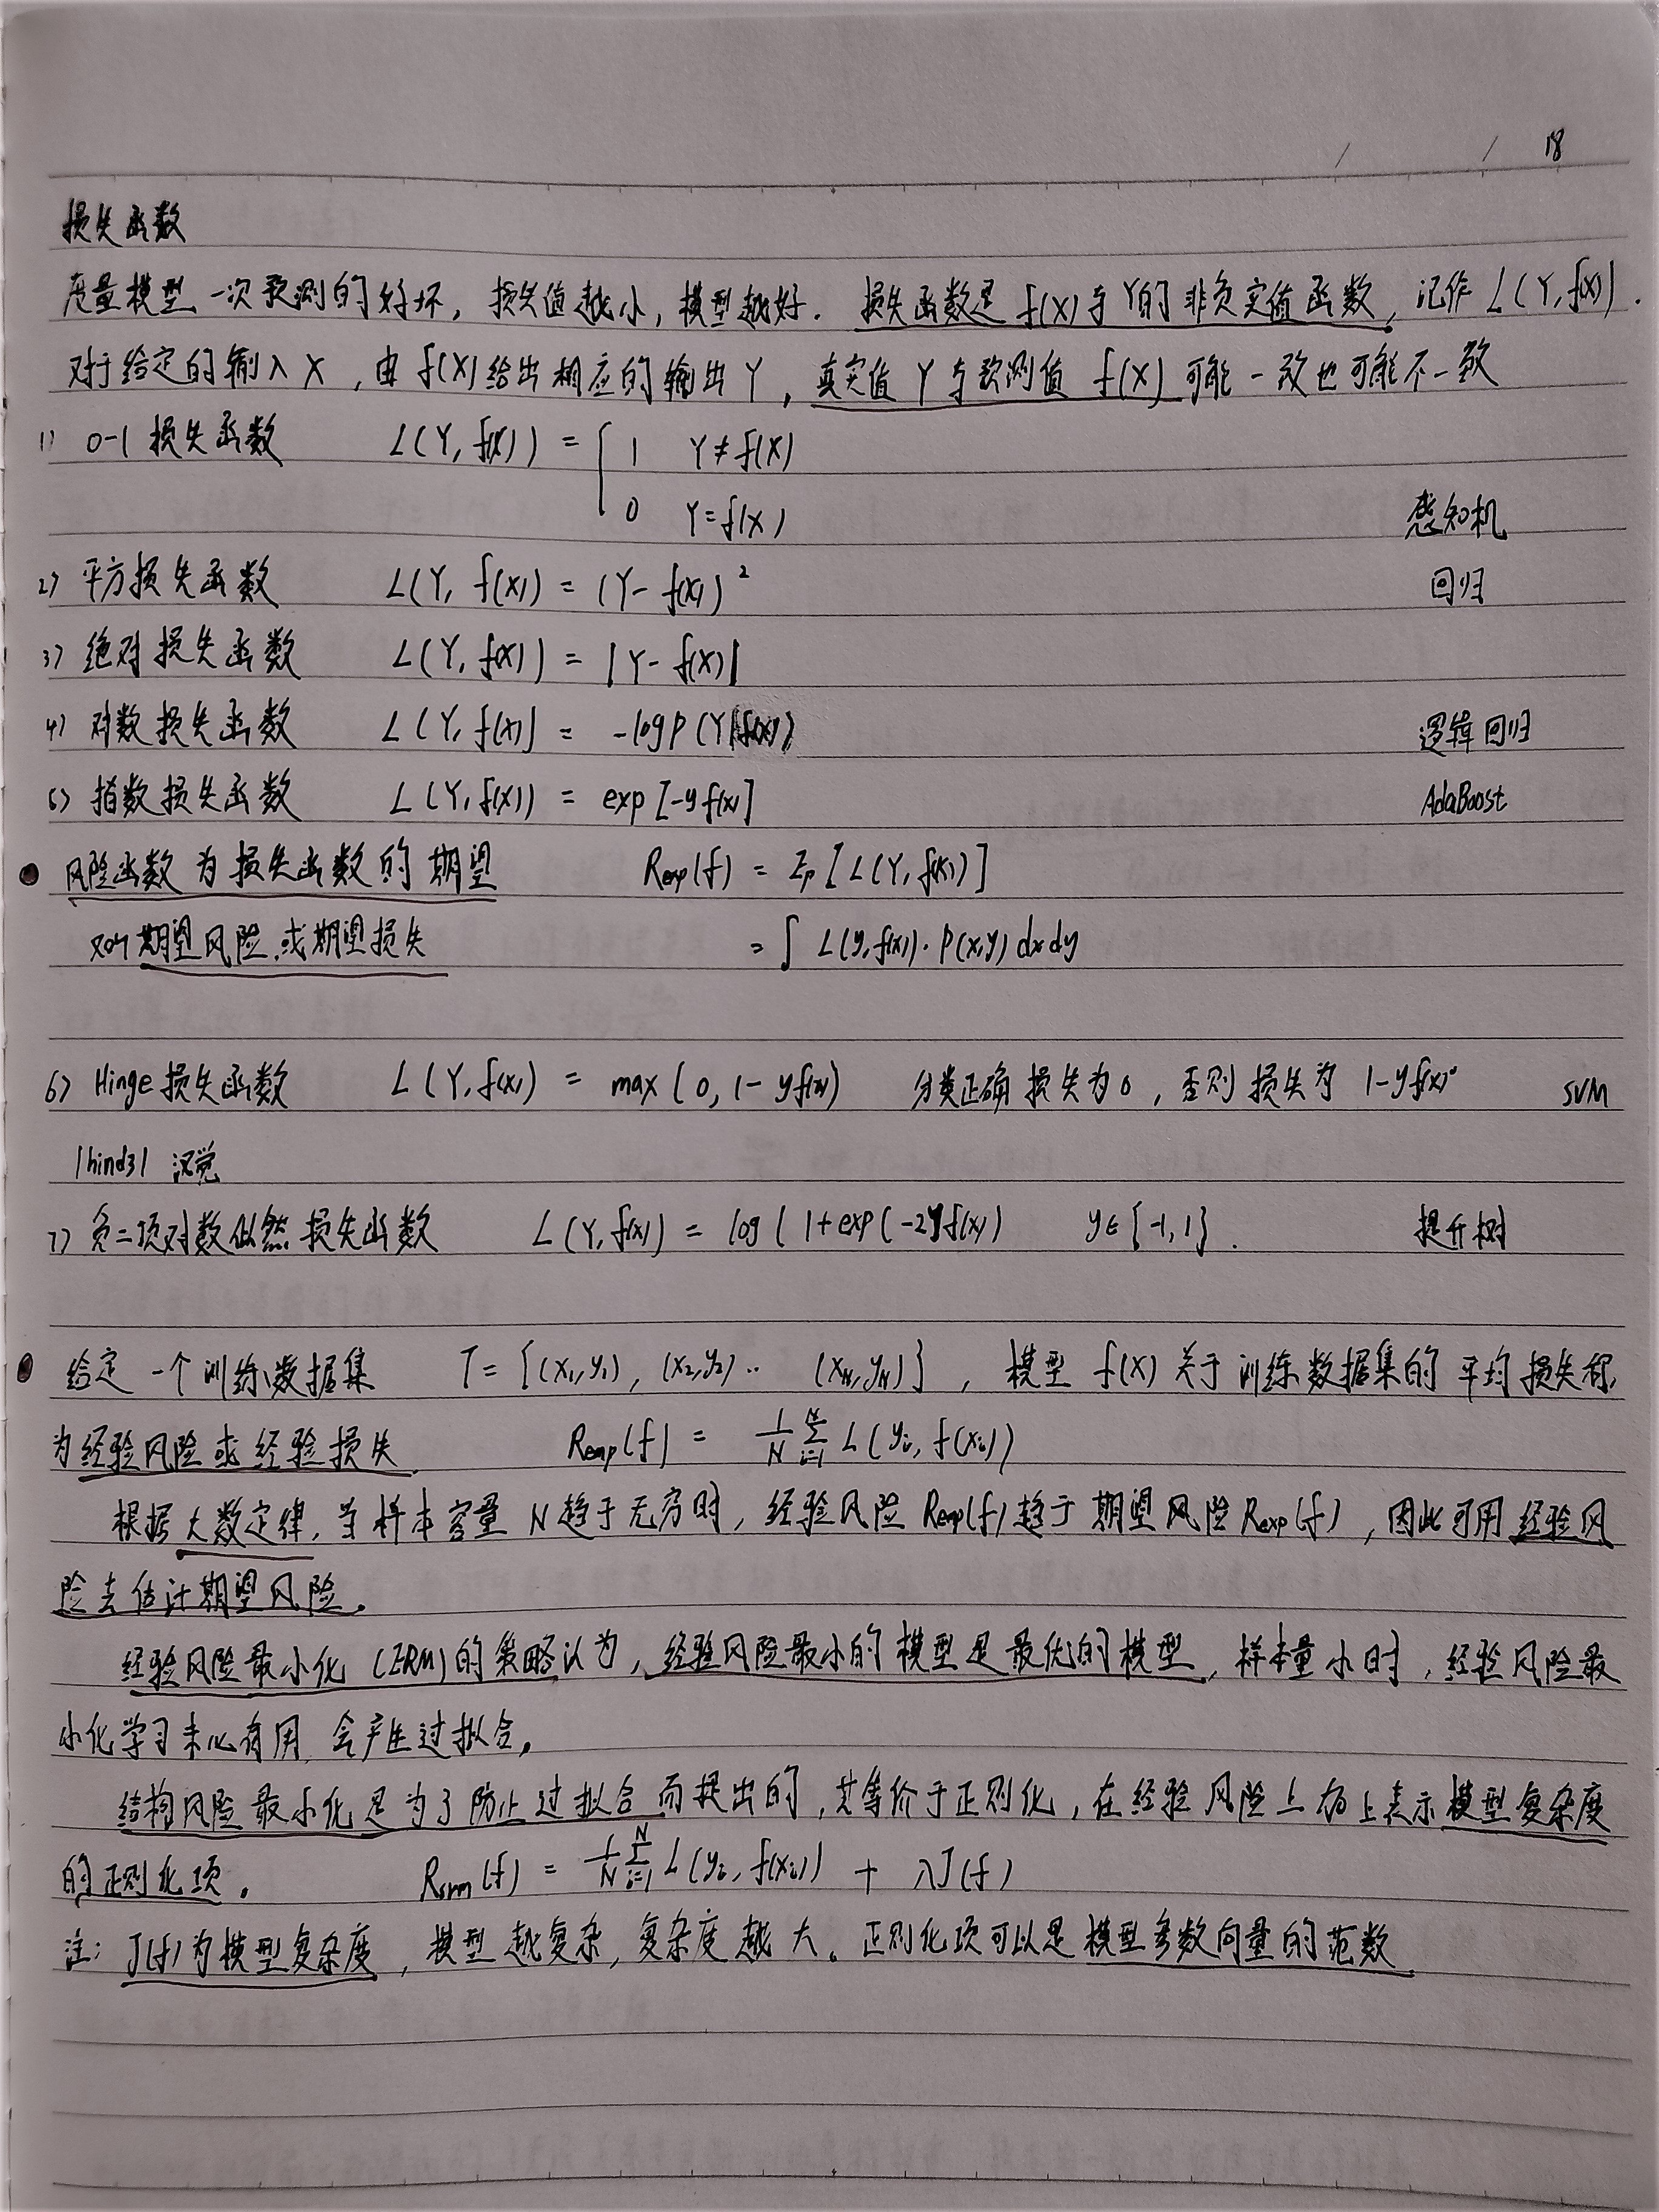 18
损失函数
度量模型一次预测的好坏, 损失值越小, 模型越好. 损失函数是 f(X) 与 Y的非负实值函数, 记作 L(Y, f(X)).
对于给定的输入 X, 由 f(X) 给出相应的输出 Y, 真实值 Y 与预测值 f(X) 可能一致也可能不一致
1) 0-1 损失函数 L(Y, f(X)) = { 1 Y≠f(X)
0 Y=f(X) 感知机
2) 平方损失函数 L(Y, f(X)) = (Y-f(X))² 回归
3) 绝对损失函数 L(Y, f(X)) = |Y-f(X)|
4) 对数损失函数 L(Y, f(X)) = -log P(Y|f(X)) 逻辑回归
5) 指数损失函数 L(Y, f(X)) = exp[-yf(x)] AdaBoost
● 风险函数为损失函数的期望 Rexp(f) = Ep[L(Y, f(X))]
又叫期望风险.或期望损失 = ∫ L(y, f(x))·P(x,y) dxdy
6) Hinge 损失函数 L(Y, f(x)) = max(0, 1-yf(x)) 分类正确损失为0, 否则损失为 1-yf(x) SVM
|hindʒ|
7) 负二项对数似然损失函数 L(Y, f(x)) = log(1+exp(-2yf(x)) y∈{-1,1}. 提升树
● 给定一个训练数据集 T={(x₁,y₁), (x₂,y₂)·· (x_N,y_N)}, 模型 f(X) 关于训练数据集的平均损失称
为经验风险或经验损失 Remp(f) = 1/N ∑_{i=1}^N L(yᵢ, f(xᵢ))
根据大数定律, 当样本容量 N趋于无穷时, 经验风险 Remp(f)趋于期望风险Rexp(f), 因此可用经验风
险去估计期望风险。
经验风险最小化 (ERM)的策略认为, 经验风险最小的模型是最优的模型, 样本量小时, 经验风险最
小化学习未必有用, 会产生过拟合。
结构风险最小化是为了防止过拟合而提出的, 其等价于正则化, 在经验风险上加上表示模型复杂度
的正则化项。 Rsrm(f) = 1/N ∑_{i=1}^N L(yᵢ, f(xᵢ)) + λJ(f)
注: J(f)为模型复杂度, 模型越复杂, 复杂度越大。正则化项可以是模型参数向量的范数